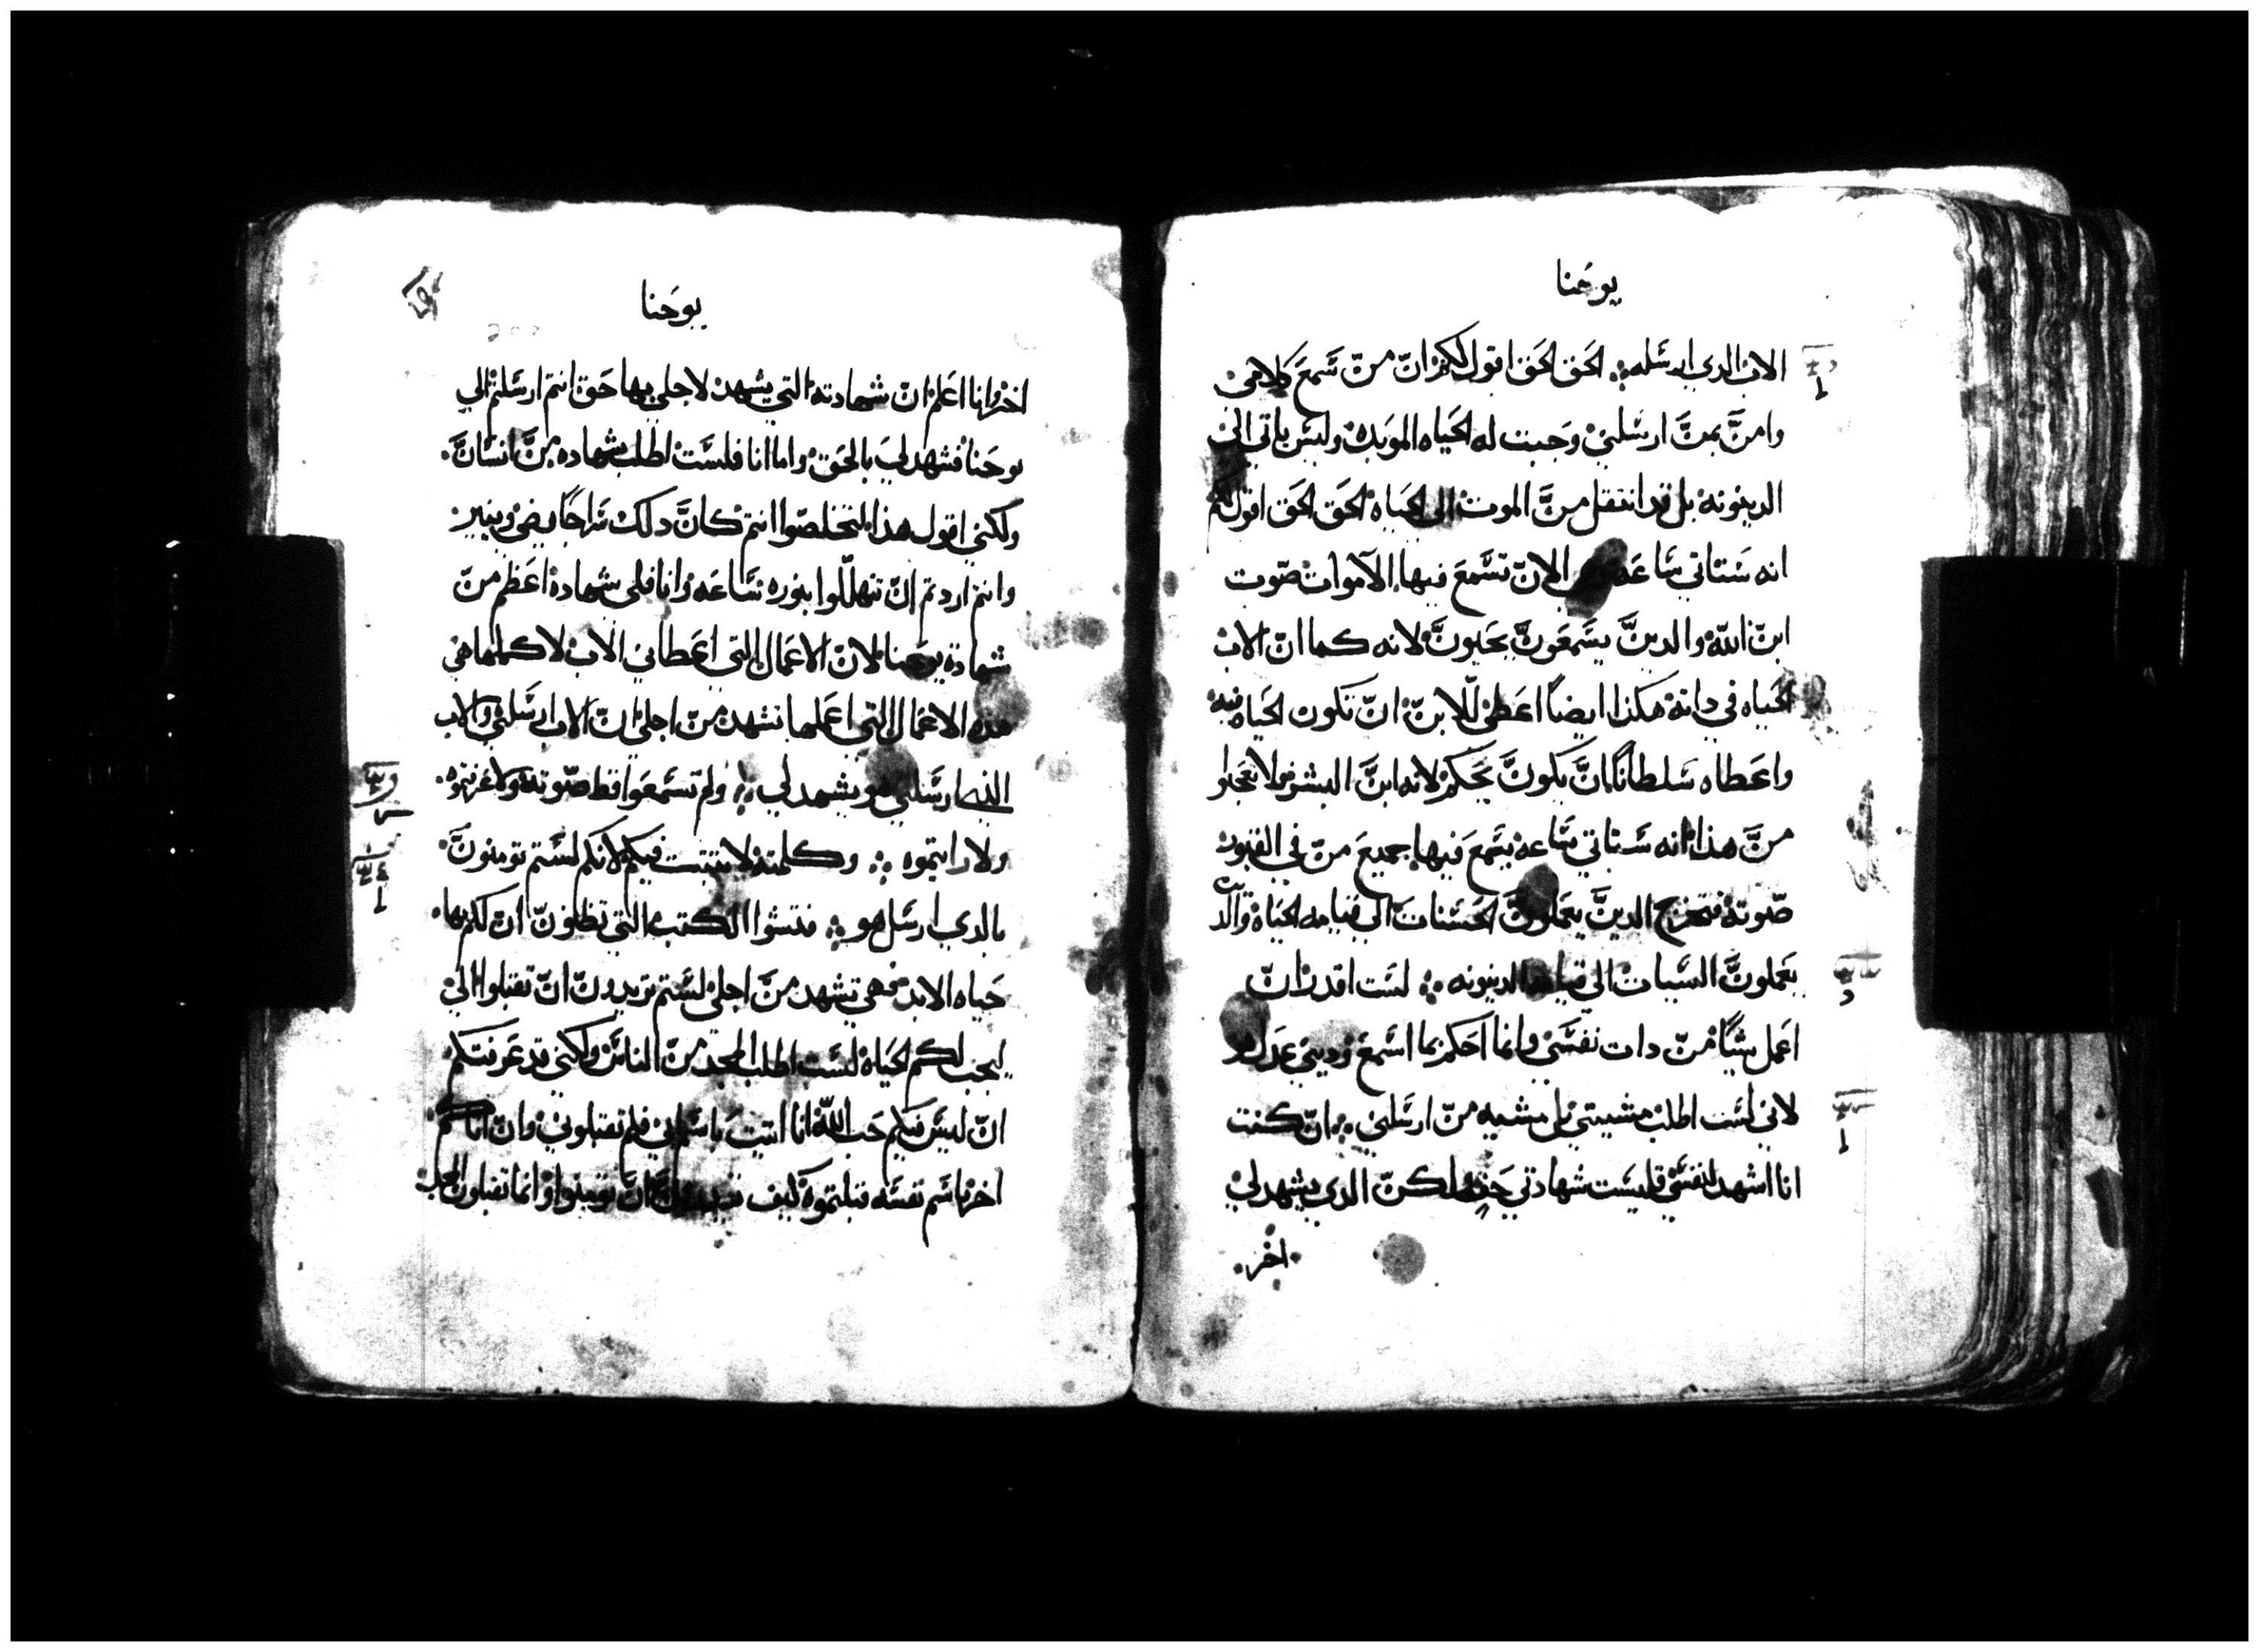 يوحنا
الاب الدي ارسله ⁘ الحق الحق اقول لكم ان من سمع كلامي
وامن بمن ارسلني وجبت له الحياه الموبده وليس ياتي الى
الدينونه بل قد انتقل من الموت الى الحياه الحق الحق اقول لكم
انه ستاتي ساعه الان تسمع فيها الاموات صوت
ابن الله والدين يسمعون يحيون لانه كما ان الاب
الحياه في داته هكذا ايضا اعطى للابن ان تكون الحياه فيه
واعطاه سلطانا ان يكون يحكم لانه ابن البشر فلا تعجبوا
من هذا انه ستاتي ساعه يسمع فيها جميع من في القبور
صوته فتخرج الدين يعملون الحسنات الى قيامه الحياه والدين
يعملون السيات الى قيامه الدينونه ⁘ لست اقدر ان
اعمل شيا من دات نفسي وانما احكم بما اسمع وديني عدل
لاني لست اطلب مشيتي بل مشيه من ارسلني ⁘ ان كنت
انا اشهد لنفسي فليست شهادتي حق لكن الدي يشهد لي
اخر
يوحنا
اخر وانا اعلم ان شهادته التي يشهد لاجلي بها حق انتم ارسلتم الى
يوحنا فشهد لي بالحق واما انا فلست اطلب شهاده من انسان
ولكني اقول هذا لتخلصوا انتم كان دلك سراجا يضي وينير
وانتم اردتم ان تتهللوا بنوره ساعه وانا فلي شهاده اعظم من
شهادة يوحنا لان الاعمال التي اعطاني الاب لاكملها هي
هذه الاعمال التي اعملها تشهد من اجلي ان الاب ارسلني والاب
الذي ارسلني هو يشهد لي ⁘ ولم تسمعوا قط صوته ولا عرفتموه
ولا رايتموه ⁘ وكلمته لا تتبت فيكم لانكم لستم تومنون
بالدي ارسل هو ⁘ فتشوا الكتب التي تظنون ان لكم بها
حياه الابد فهي تشهد من اجلي لستم تريدون ان تقبلوا الي
ليجب لكم الحياه لست اطلب المجد من الناس ولكني قد عرفتكم
ان ليس فيكم حب الله انا اتيت باسم ابي فلم تقبلوني وان اتاكم
اخر باسم نفسه قبلتموه كيف تقدرون ان تومنوا وانما تقبلون المجد